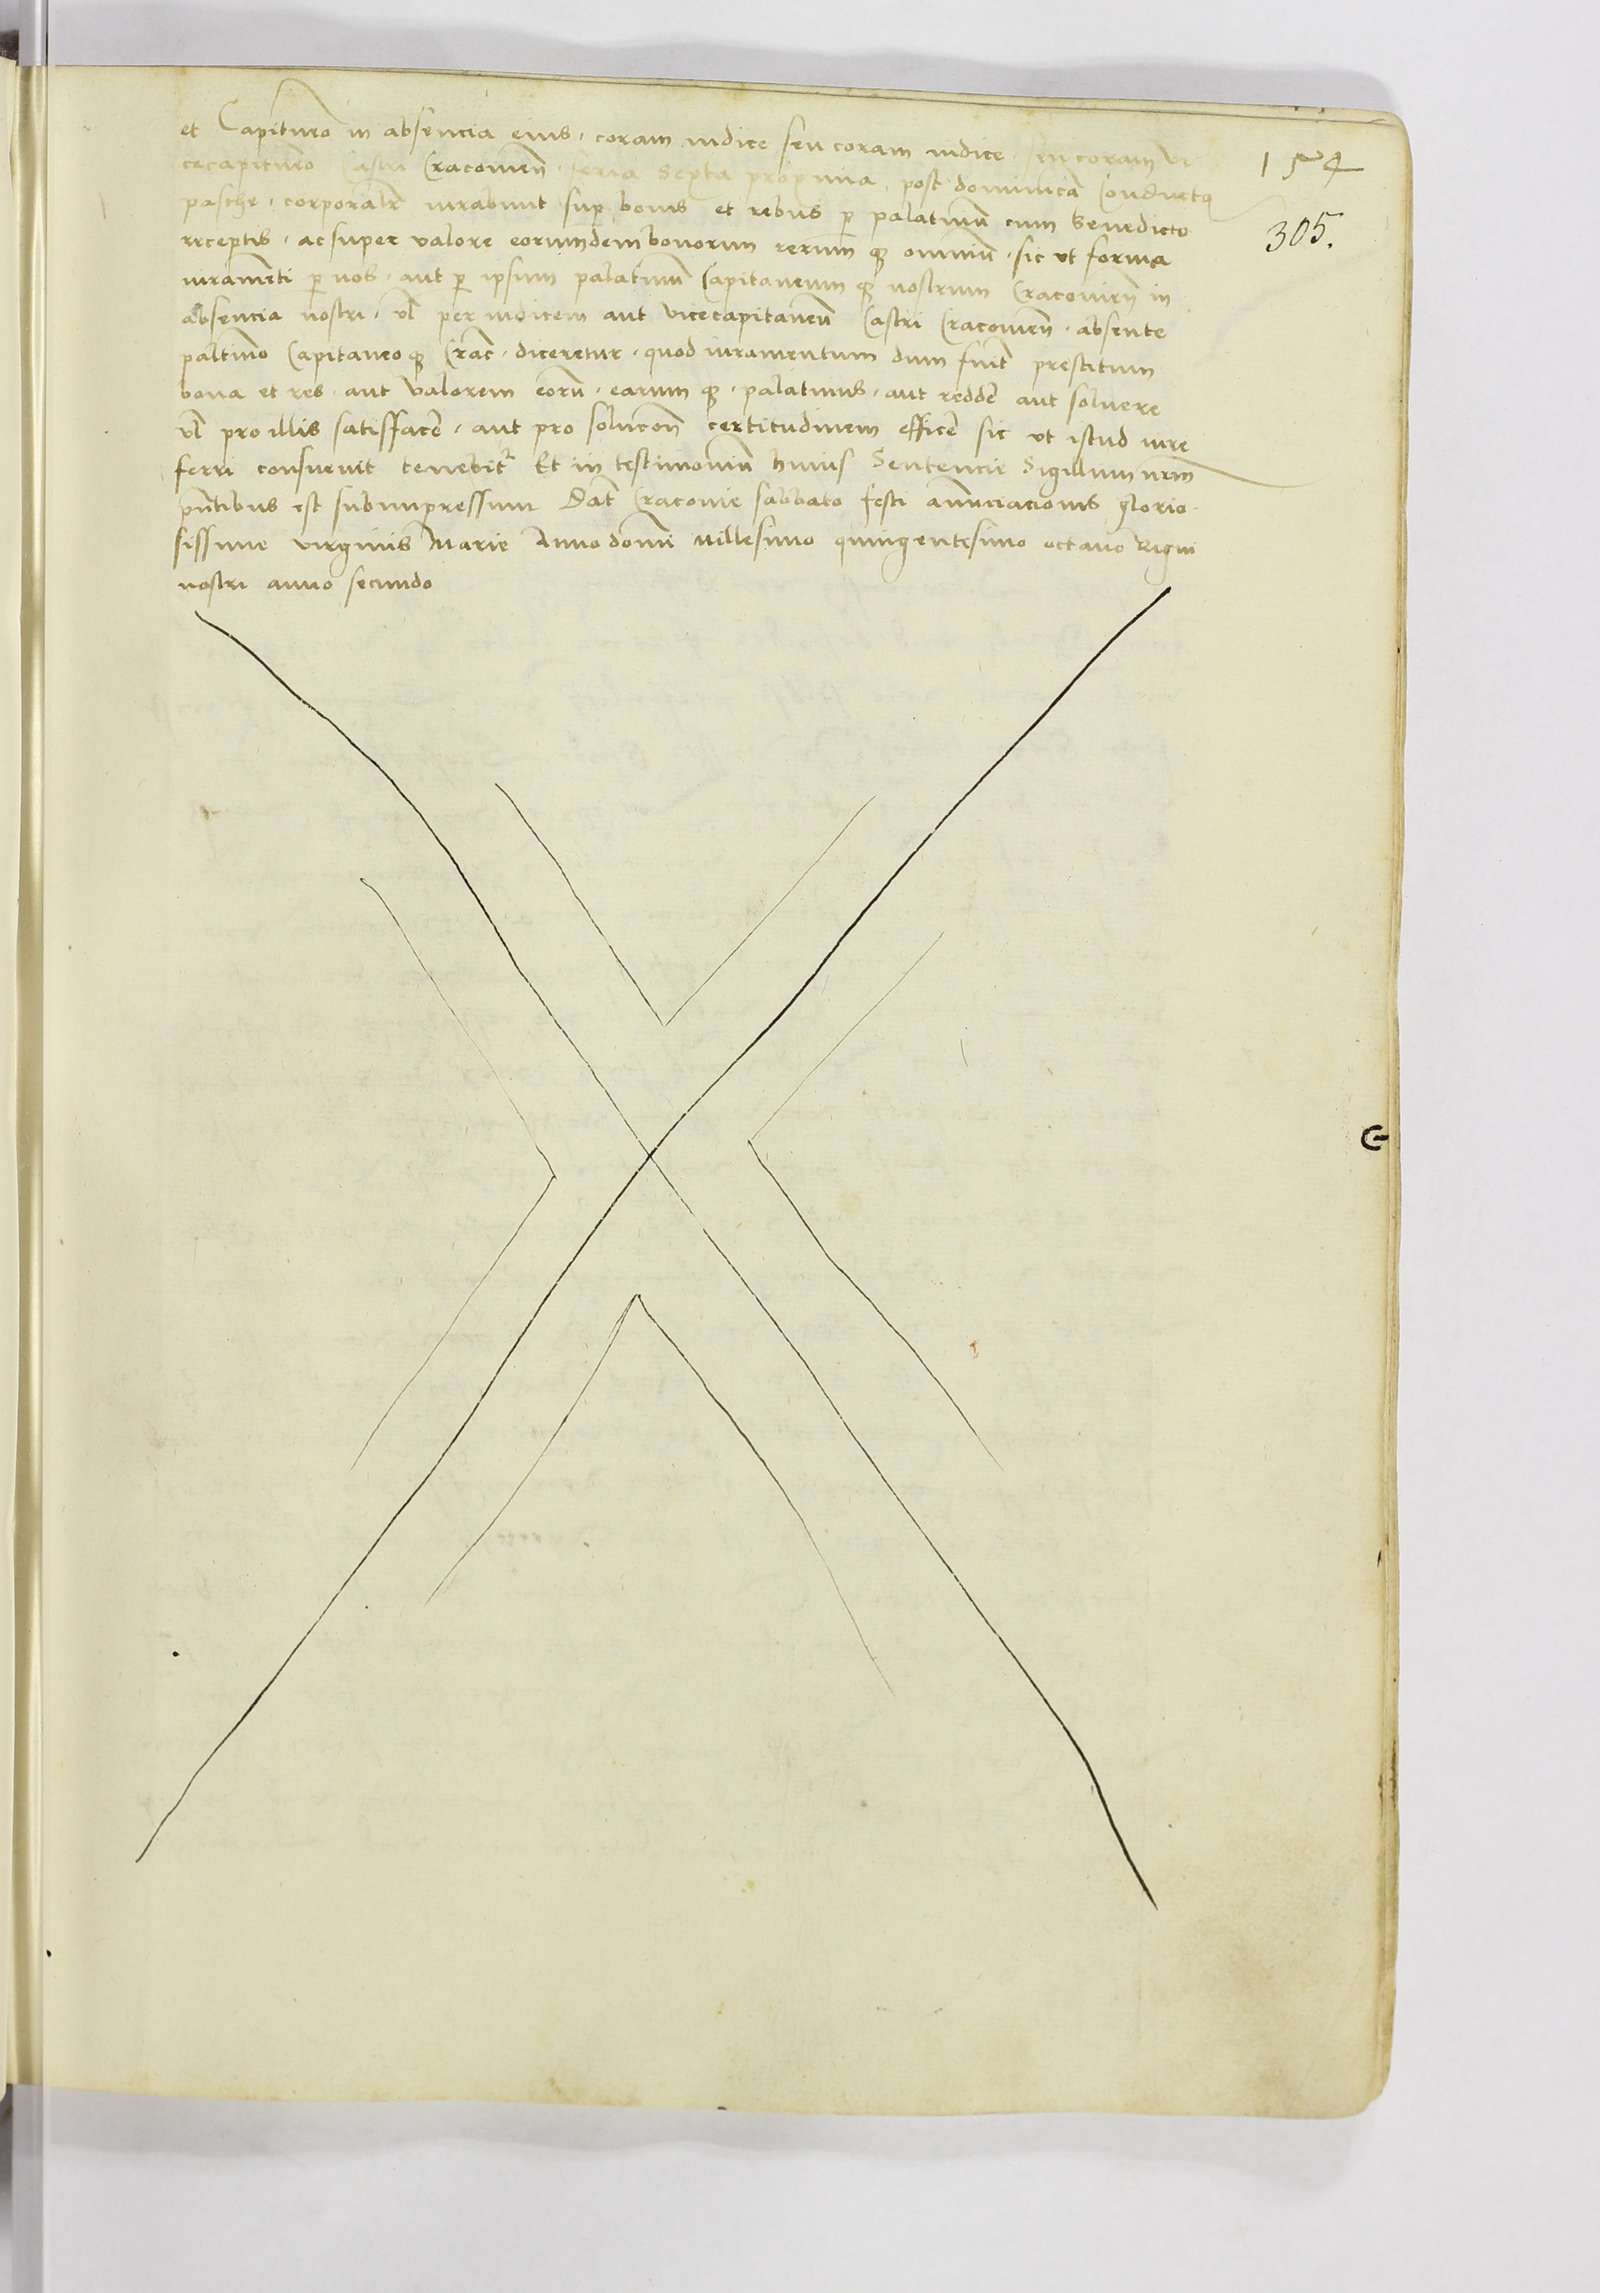 et Capitaneo in absencia eius · coram iudice seu coram iudice · seu coram vi
cecapitaneo Castri Cracovien̄ · feria Sexta proxima · post dominicā Conductꝯ
pasche · corporalr̄ iurabunt sup bonis et rebus p palatinū cum Benedicto
receptis · ac super valore eorumdem bonorum rerum qꝫ omniū · sic ut forma
iuramēti p nos · aut p ipsum palatinū Capitaneum qꝫ nostrum Cracovien̄ in
absencia nostri · vl̄ per iudicem aut vicecapitaneū Castri Cracovien̄ · absente
paltino Capitaneo qꝫ Crac̄ · diceretur · quod iuramentum dum fuit prestitum
bona et res · aut valorem eorū · earum qꝫ · palatinus · aut redde̅ aut soluere
vl̄ pro illis satisface̅ · aut pro solucoñ certitudinem effice̅ sic ut istud iure
ferri consuevit tenebit᷑ Et in testimoniū huius Sentencie Sigillum nrm̄
pn̄tibus est subimpressum Dat̄ Cracovie sabbato festi annūciacionis glorio-
sissime virginis Marie Anno domī Millesimo quingentesimo octavo Regni
nostri anno secundo
154
305.